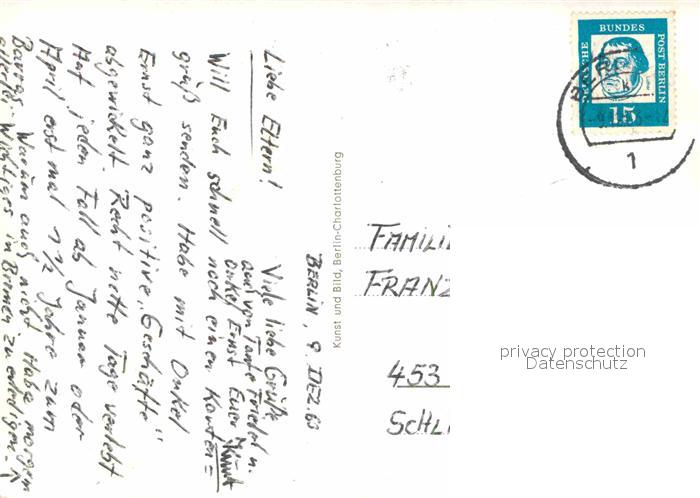 BERLIN, 9. DEZ. 63
Liebe Eltern!
Will Euch schnell noch einen Karten=
gruß senden. Habe mit Onkel
Ernst ganz positive „Geschäfte"
abgewickelt. Recht nette Tage verlebt.
Auf jeden Fall ab Januar oder
April erst mal 1 1/2 Jahre zum
Barras. Warum auch nicht. Habe morgen
allerlei Wichtiges in Bremen zu erledigen.
Viele liebe Grüße
auch von Tante Friedel u.
Onkel Ernst Euer
Kunst und Bild, Berlin-Charlottenburg
DEUTSCHE
BUNDES
POST BERLIN
15
1
FAMILI
FRANZ
453
SCHL
privacy protection
Datenschutz